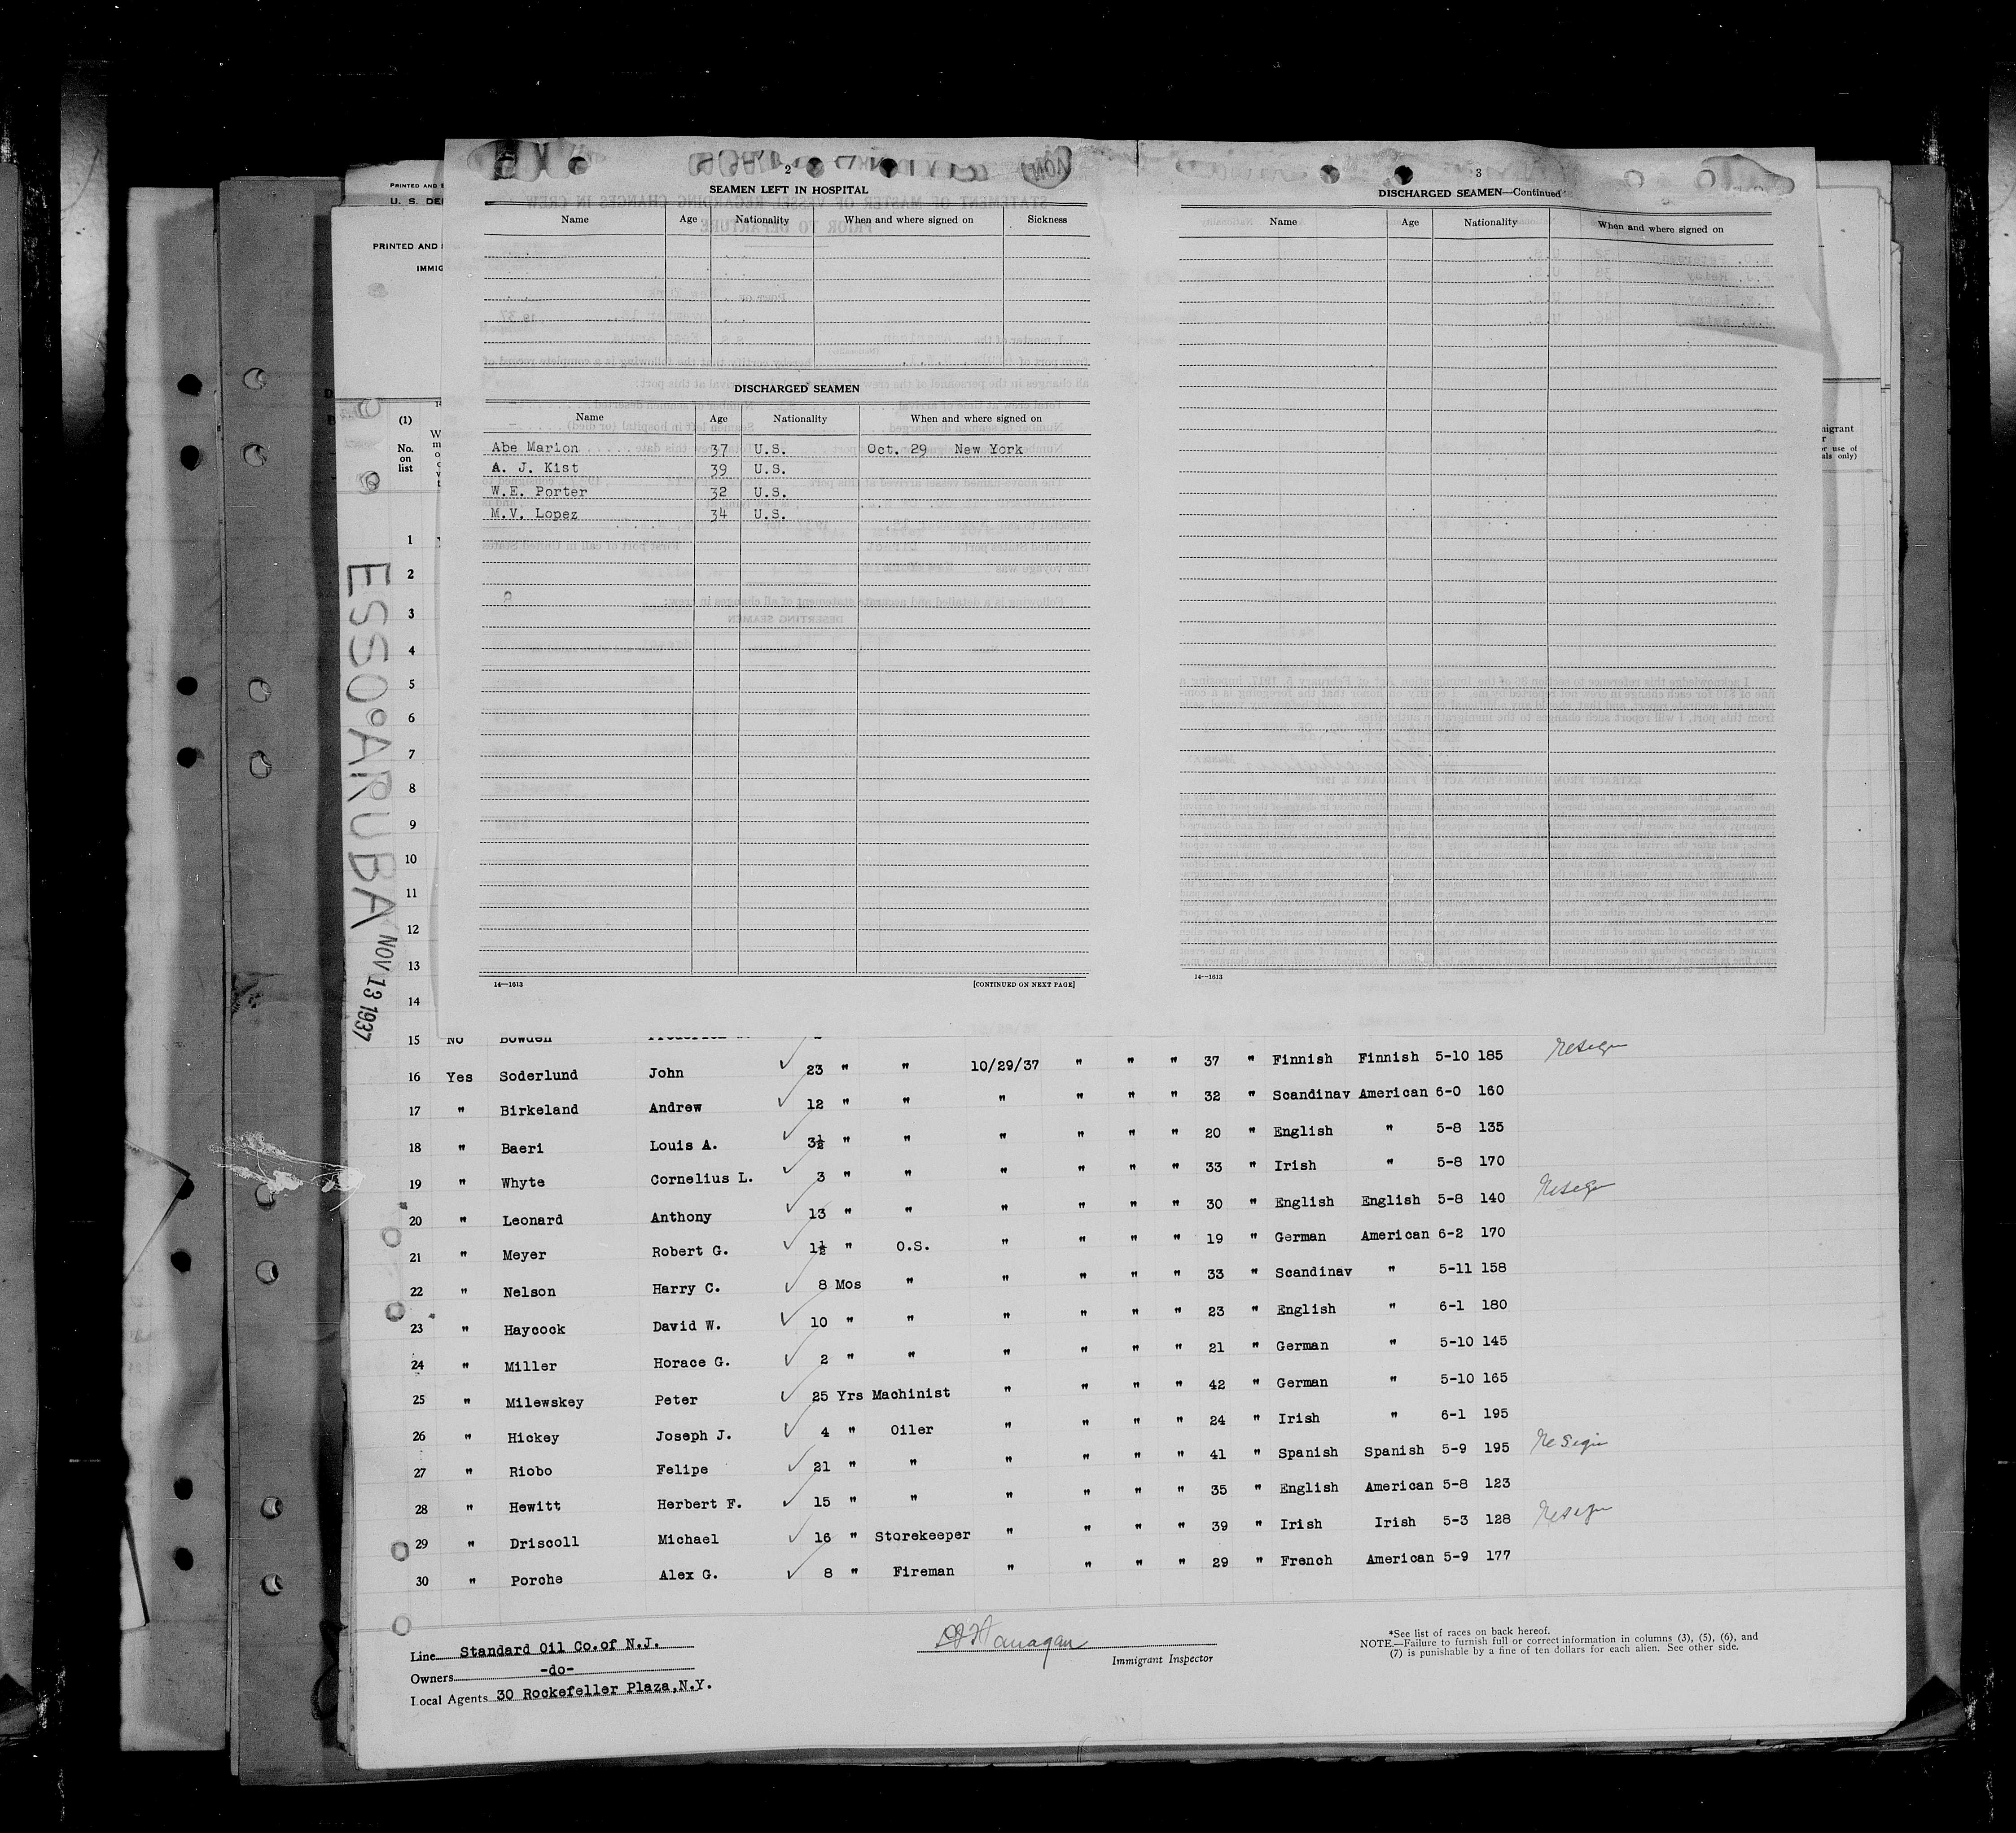 PRINTED AND
U. S. DE
PRINTED AND
IMMIG
2
SEAMEN LEFT IN HOSPITAL
Name Age Nationality When and where signed on Sickness
DISCHARGED SEAMEN
Name Age Nationality When and where signed on
Abe Marion 37 U.S. Oct. 29 New York
A. J. Kist 39 U.S.
W.E. Porter 32 U.S.
M.V. Lopez 34 U.S.
14—1613 [CONTINUED ON NEXT PAGE]
3
DISCHARGED SEAMEN—Continued
Name Age Nationality When and where signed on
14—1613
ESSO ARUBA NOV 13 1937
(1)
No.
on
list
migrant
r
r use of
als only)
1
2
3
4
5
6
7
8
9
10
11
12
13
14
15 No Bowden
16 Yes Soderlund John ✓ 23 " " 10/29/37 " " " 37 " Finnish Finnish 5-10 185
17 " Birkeland Andrew ✓ 12 " " " " " " 32 " Scandinav American 6-0 160
18 " Baeri Louis A. ✓ 3½ " " " " " " 20 " English " 5-8 135
19 " Whyte Cornelius L. ✓ 3 " " " " " " 33 " Irish " 5-8 170
20 " Leonard Anthony ✓ 13 " " " " " " 30 " English English 5-8 140
21 " Meyer Robert G. ✓ 1½ " O.S. " " " " 19 " German American 6-2 170
22 " Nelson Harry C. ✓ 8 Mos " " " " " 33 " Scandinav " 5-11 158
23 " Haycock David W. ✓ 10 " " " " " " 23 " English " 6-1 180
24 " Miller Horace G. ✓ 2 " " " " " " 21 " German " 5-10 145
25 " Milewskey Peter ✓ 25 Yrs Machinist " " " " 42 " German " 5-10 165
26 " Hickey Joseph J. ✓ 4 " Oiler " " " " 24 " Irish " 6-1 195
27 " Riobo Felipe ✓ 21 " " " " " " 41 " Spanish Spanish 5-9 195
28 " Hewitt Herbert F. ✓ 15 " " " " " " 35 " English American 5-8 123
29 " Driscoll Michael ✓ 16 " Storekeeper " " " " 39 " Irish Irish 5-3 128
30 " Porche Alex G. ✓ 8 " Fireman " " " " 29 " French American 5-9 177
Line Standard Oil Co.of N.J.
Owners -do-
Local Agents 30 Rockefeller Plaza,N.Y.
Immigrant Inspector
*See list of races on back hereof.
NOTE.—Failure to furnish full or correct information in columns (3), (5), (6), and
(7) is punishable by a fine of ten dollars for each alien. See other side.